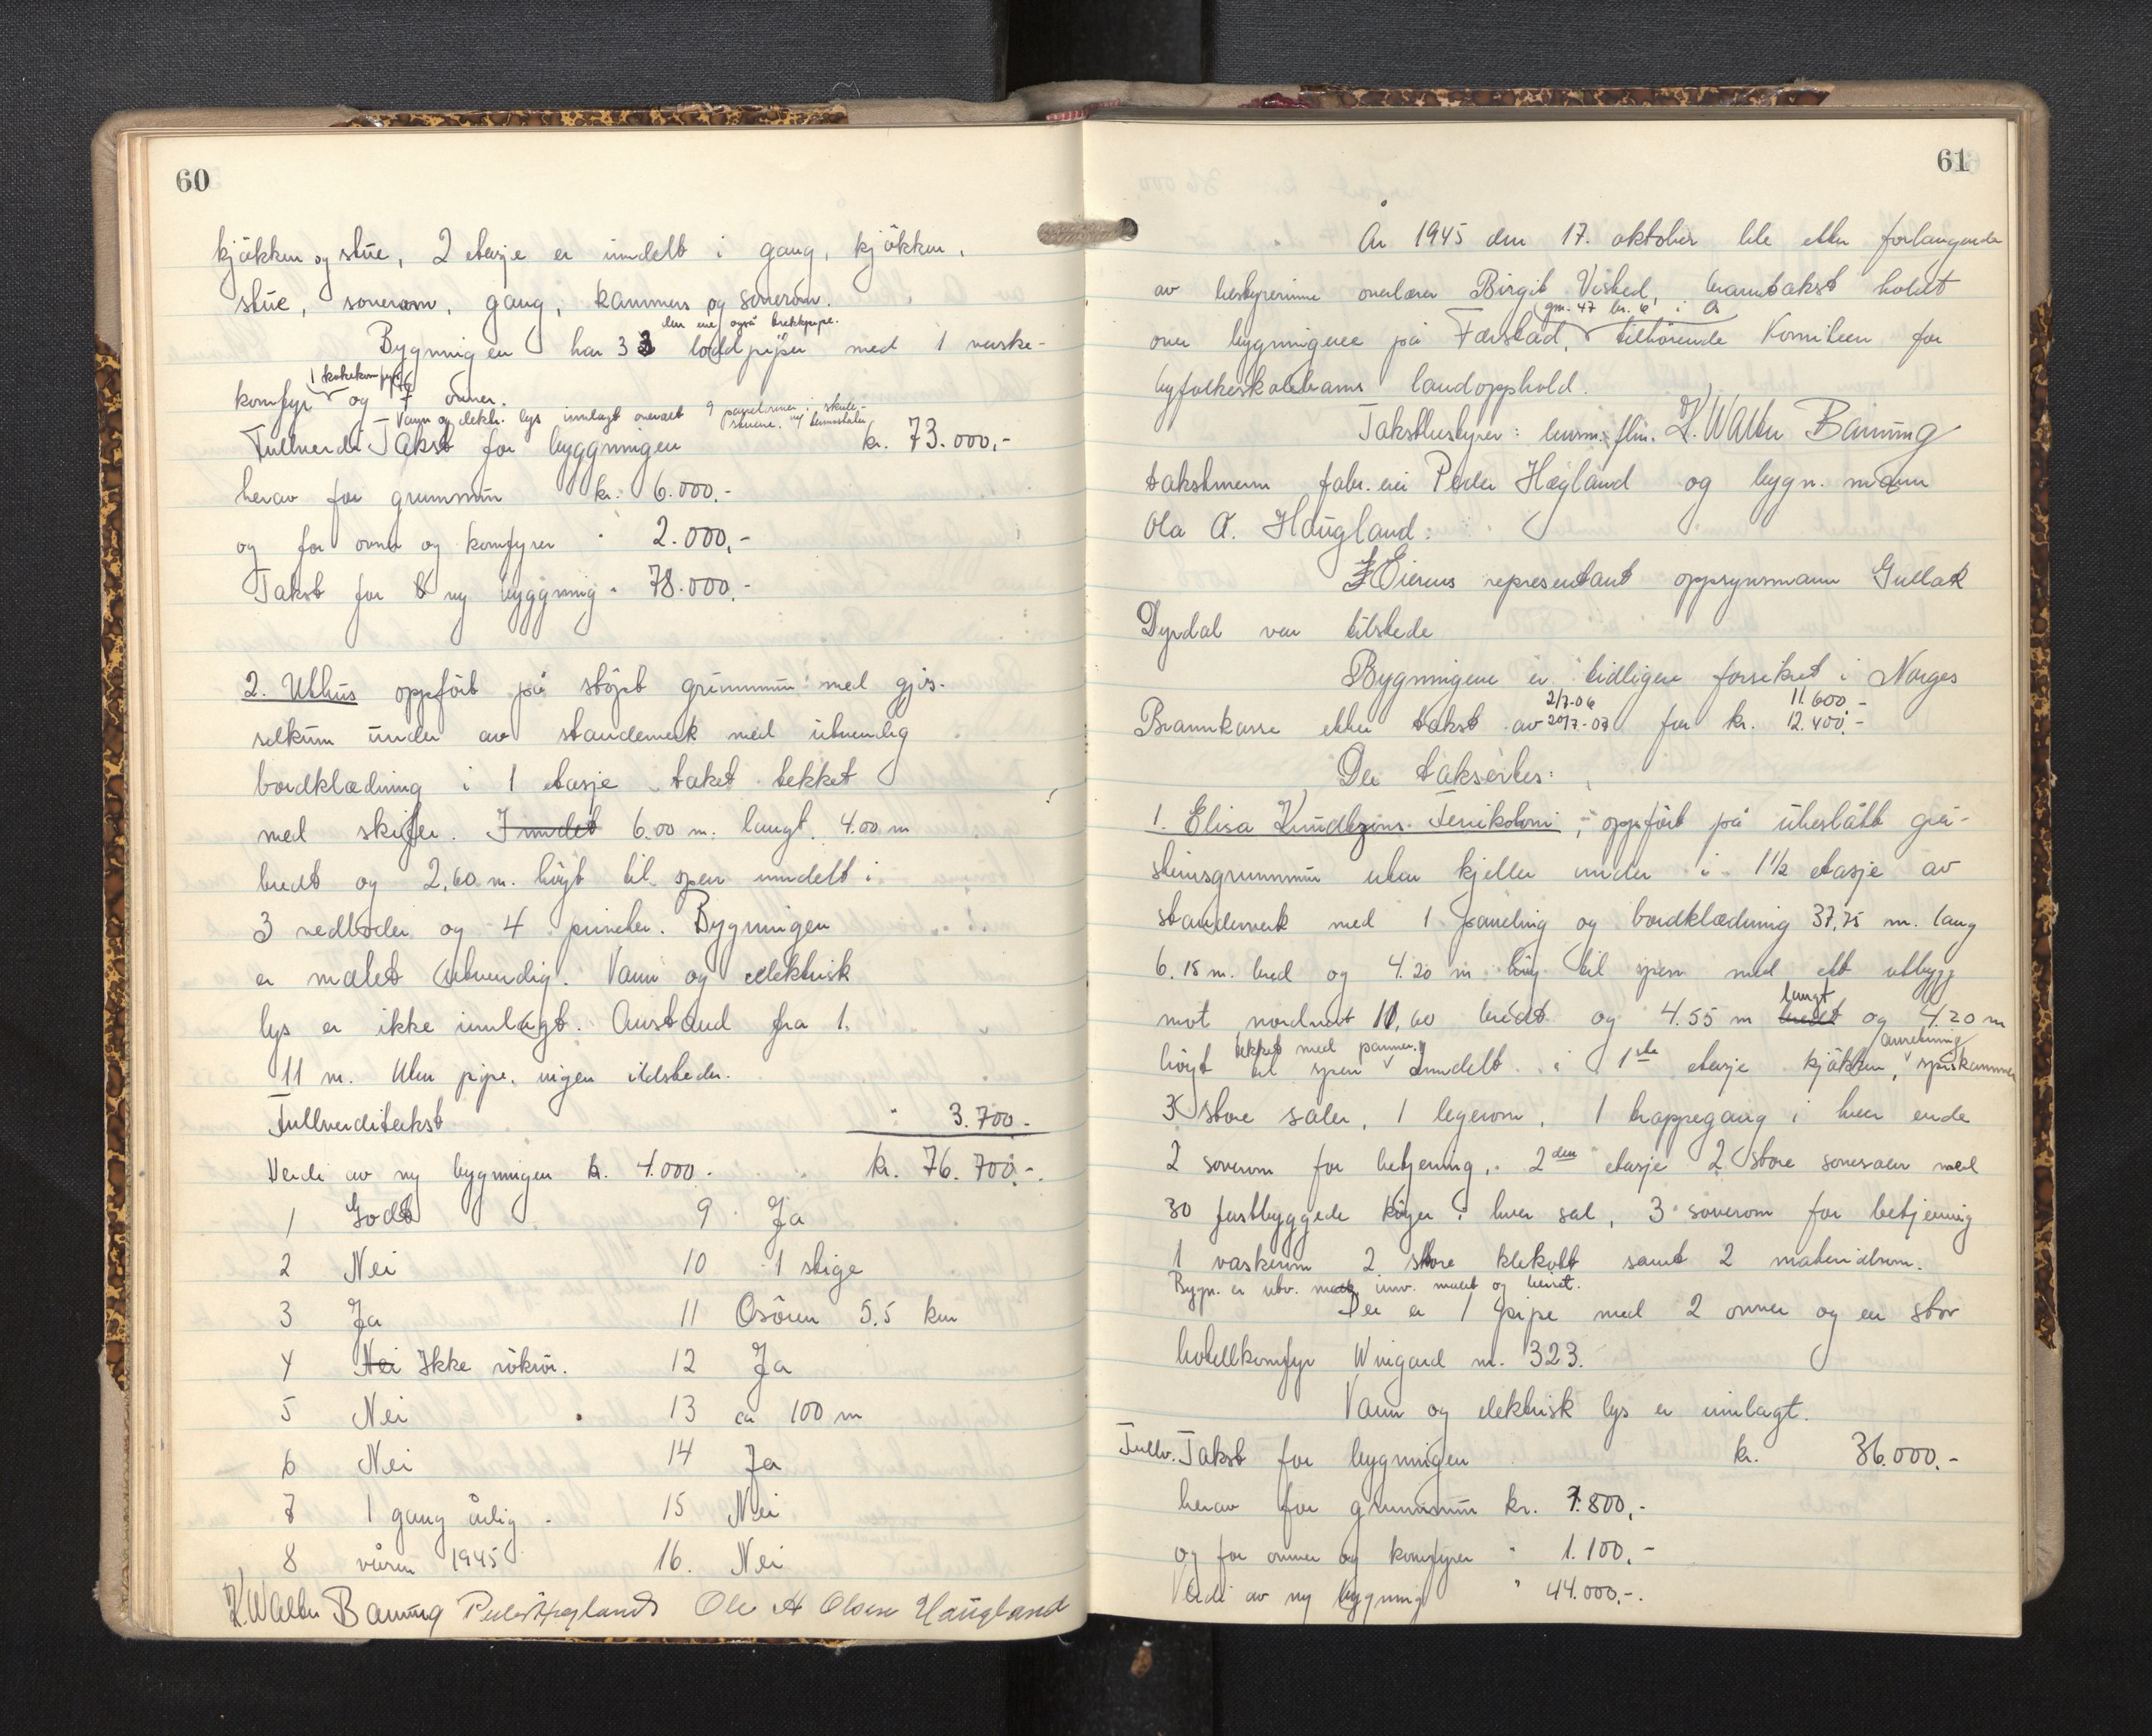 60
kjökken og stue, 2 etasje er inndelt i gang, kjökken,
stue, soverom, gang, kammers og soverom.
den ene også trekkpipe.
Bygningen har 3 loddpiper med 1 vaske-
1 kokekomfyr
komfyr og 7 ovner.
Vann og elektr. lys innlagt overalt 9 panelovner i skule-
stuene. m/ termostater
Fullverdi Takst for byggningen kr. 73.000,-
herav for grunnmur kr. 6.000,-
og for ovner og komfyrer " 2.000,-
Takst for ny byggning " 78.000,-
2. Uthus oppfört på stöpt grunnmur med gjös-
selkum under av stenderverk med utvendig
bordklædning i 1 etasje taket tekket
med skifer. Inndelt 6.00 m. langt, 4.00 m
bredt og 2,60 m. höyt til sper inndelt i
3 vedboder og 4 priveter. Bygningen
er malet utvendig. Vann og elektrisk
lys er ikke innlagt. Avstand fra 1.
11 m. Uten pipe, ingen ildsteder.
Fullverditakst " 3.700.-
Verdi av ny bygningen kr. 4.000.- kr. 76.700.-
1 Godt 9 Ja
2 Nei 10 1 stige
3 Ja 11 Osören 5,5 km
4 Nei Ikke rökrör. 12 Ja
5 Nei 13 ca 100 m
6 Nei 14 Ja
7 1 gang årlig. 15 Nei
8 våren 1945 16. Nei
K. Walter Banung Peder Hægland Ole A Olsen Haugland
61
År 1945 den 17. oktober ble etter forlangende
av bestyrerinne overlærer Birgit Visted, branntakst holdt
gnr. 47 br. 6 i Os
over bygningene på Færstad, tilhörende Komiteen for
byfolkeskolebarns landopphold.
Takstbestyrer: lensm. flm. K. Walter Banung
takstmenn fabr. eier Peder Hægland og bygn. mann
Ola A. Haugland.
Eierens representant oppsynsmann Gullak
Dyrdal var tilstede
Bygningene er tidligere forsikret i Norges
2/7-06 11.600.-
Brannkasse etter takst av 20/7-07 for kr. 12.400.-
Der takseres:
1. Elisa Knudtzons Feriekoloni, oppfört på uheslått grå-
steinsgrunnmur uten kjeller under i 1 1/2 etasje av
stenderverk med 1 paneling og bordklædning 37,75 m. lang
6.15 m. bred og 4.20 m höy til sper med ett utbygg
langt
mot nordvest 11,60 bredt og 4.55 m bredt og 4.20 m
tekket med panner. anretning
höyt til sper inndelt i 1ste etasje kjökken, spiskammer
3 store saler, 1 legerom, 1 trappegang i hver ende
2 soverom for betjening,. 2den etasje 2 store sovesaler med
30 fastbyggede köyer i hver sal, 3 soverom for betjening
1 vaskerom 2 store klekott samt 2 materialrom.
Bygn. er utv. malt innv. malet og beiset.
Der er 1 pipe med 2 ovner og en stor
hotellkomfyr Wingaard nr. 323.
Vann og elektrisk lys er innlagt.
Fullv. Takst for bygningen kr. 36.000.-
herav for grunnmur kr. 1.800,-
og for ovner og komfyrer " 1.100,-
Verdi av ny bygning " 44.000.-.